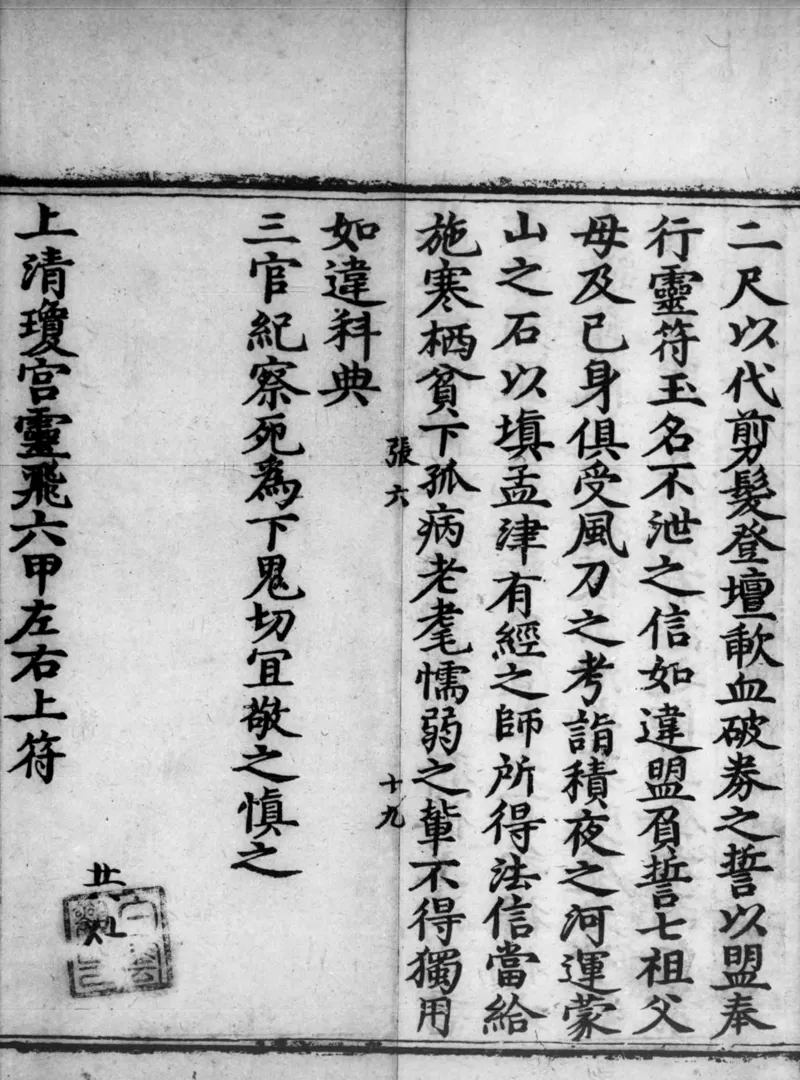 二尺以代剪髮登壇歃血破券之誓以盟奉
行靈符玉名不泄之信如違盟負誓七祖父
母及己身俱受風刀之考詣積夜之河運蒙
山之石以填孟津有經之師所得法信當給
施寒栖貧下孤病老耄懦弱之輩不得獨用
張六
十九
如違科典
三官紀察死為下鬼切宜敬之慎之
上清瓊宮靈飛六甲左右上符